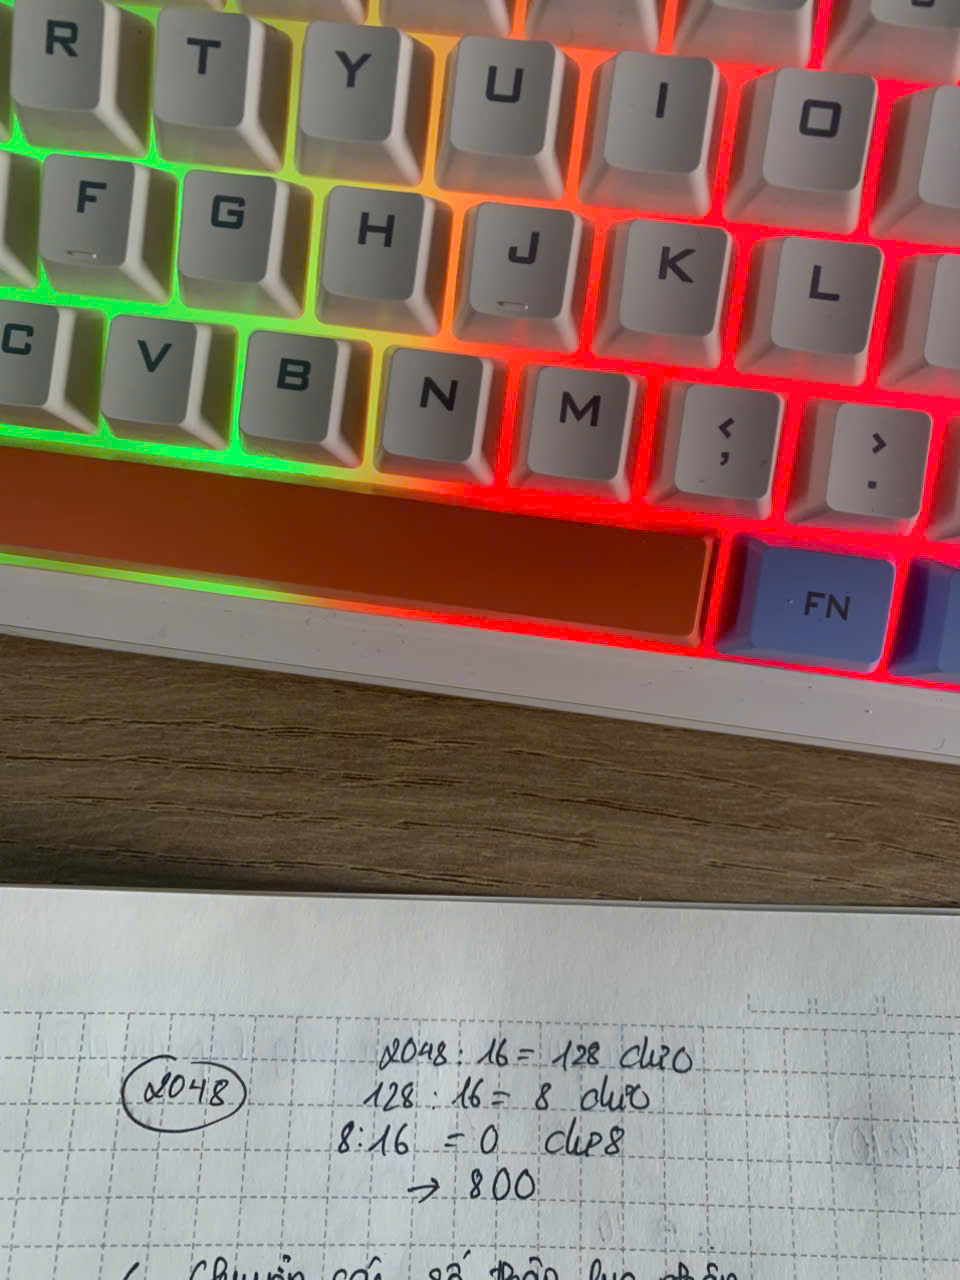 R T Y U I O
F G H J K L
C V B N M < , > .
FN
2048
2048 : 16 = 128 dư 0
128 : 16 = 8 dư 0
8 : 16 = 0 dư 8
→ 800
Chuyển các số thập lục phân